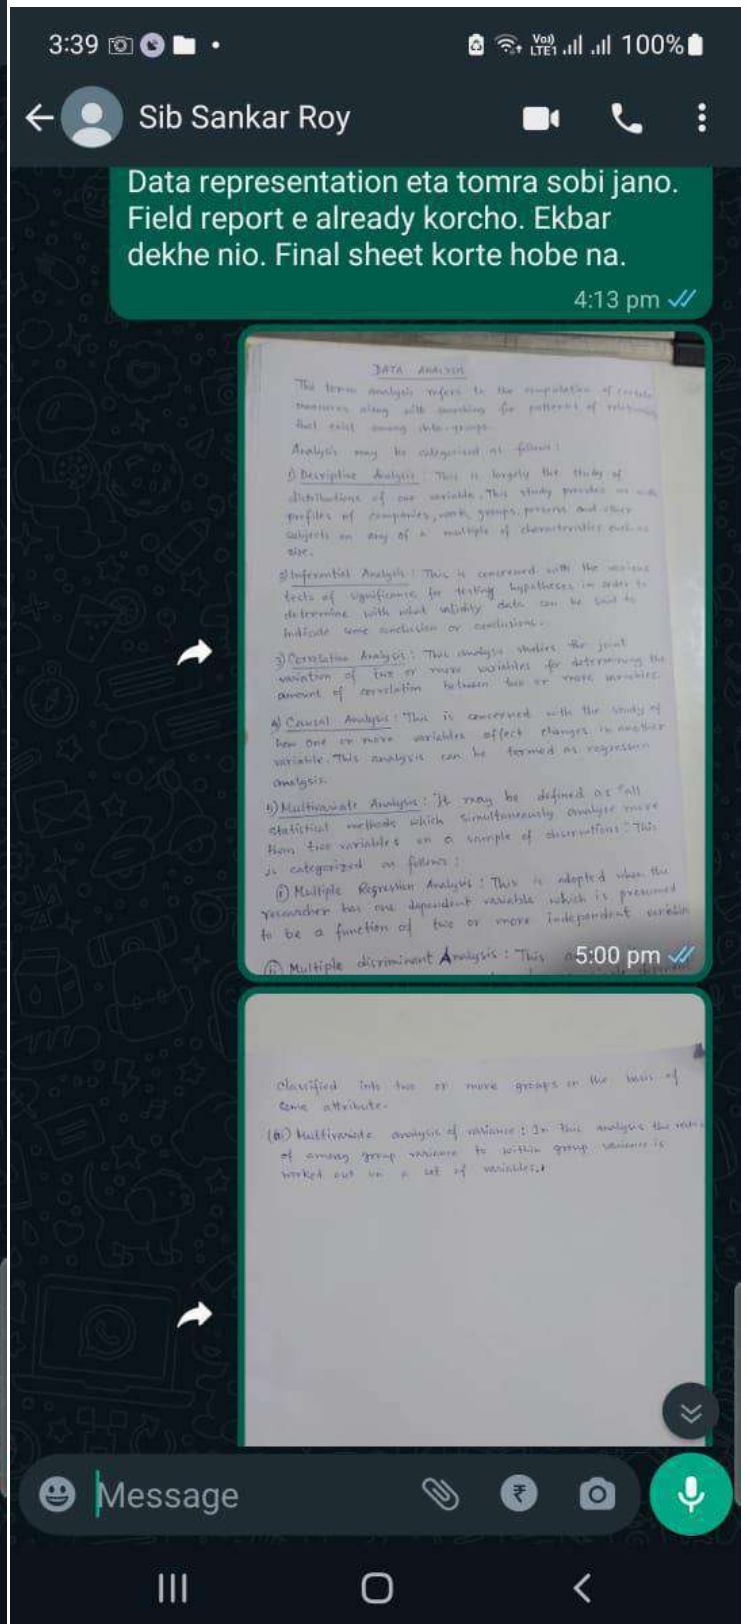 3:39
Vo)) LTE1 100%
Sib Sankar Roy
Data representation eta tomra sobi jano.
Field report e already korcho. Ekbar
dekhe nio. Final sheet korte hobe na.
4:13 pm
DATA ANALYSIS
The term analysis refers to the computation of certain
measures along with searching for patterns of
that exist among data-groups.
Analysis may be categorised as follows:
1) Descriptive Analysis: This is largely the study of
distributions of one variable. This study provides us with
profiles of companies, work groups, persons and other
subjects on any of a multiple of characteristics such as
size.
2) Inferential Analysis: This is concerned with the various
tests of significance for testing hypotheses in order to
determine with what validity data can be said to
indicate some conclusion or conclusions.
3) Correlation Analysis: This analysis studies the joint
variation of two or more variables for determining the
amount of correlation between two or more variables
4) Causal Analysis: This is concerned with the study of
how one or more variables affect changes in another
variable. This analysis can be termed as regression
analysis.
5) Multivariate Analysis: It may be defined as "all
statistical methods which simultaneously analyse more
than two variables on a sample of observations". This
is categorized as follows:
(i) Multiple Regression Analysis: This is adopted when the
researcher has one dependent variable which is presumed
to be a function of two or more independent
(ii) Multiple discriminant Analysis: This
5:00 pm
classified into two or more groups on the basis of
some attribute.
(iii) Multivariate analysis of variance: In this analysis the
of among group variance to within group variance is
worked out on a set of variables.
Message